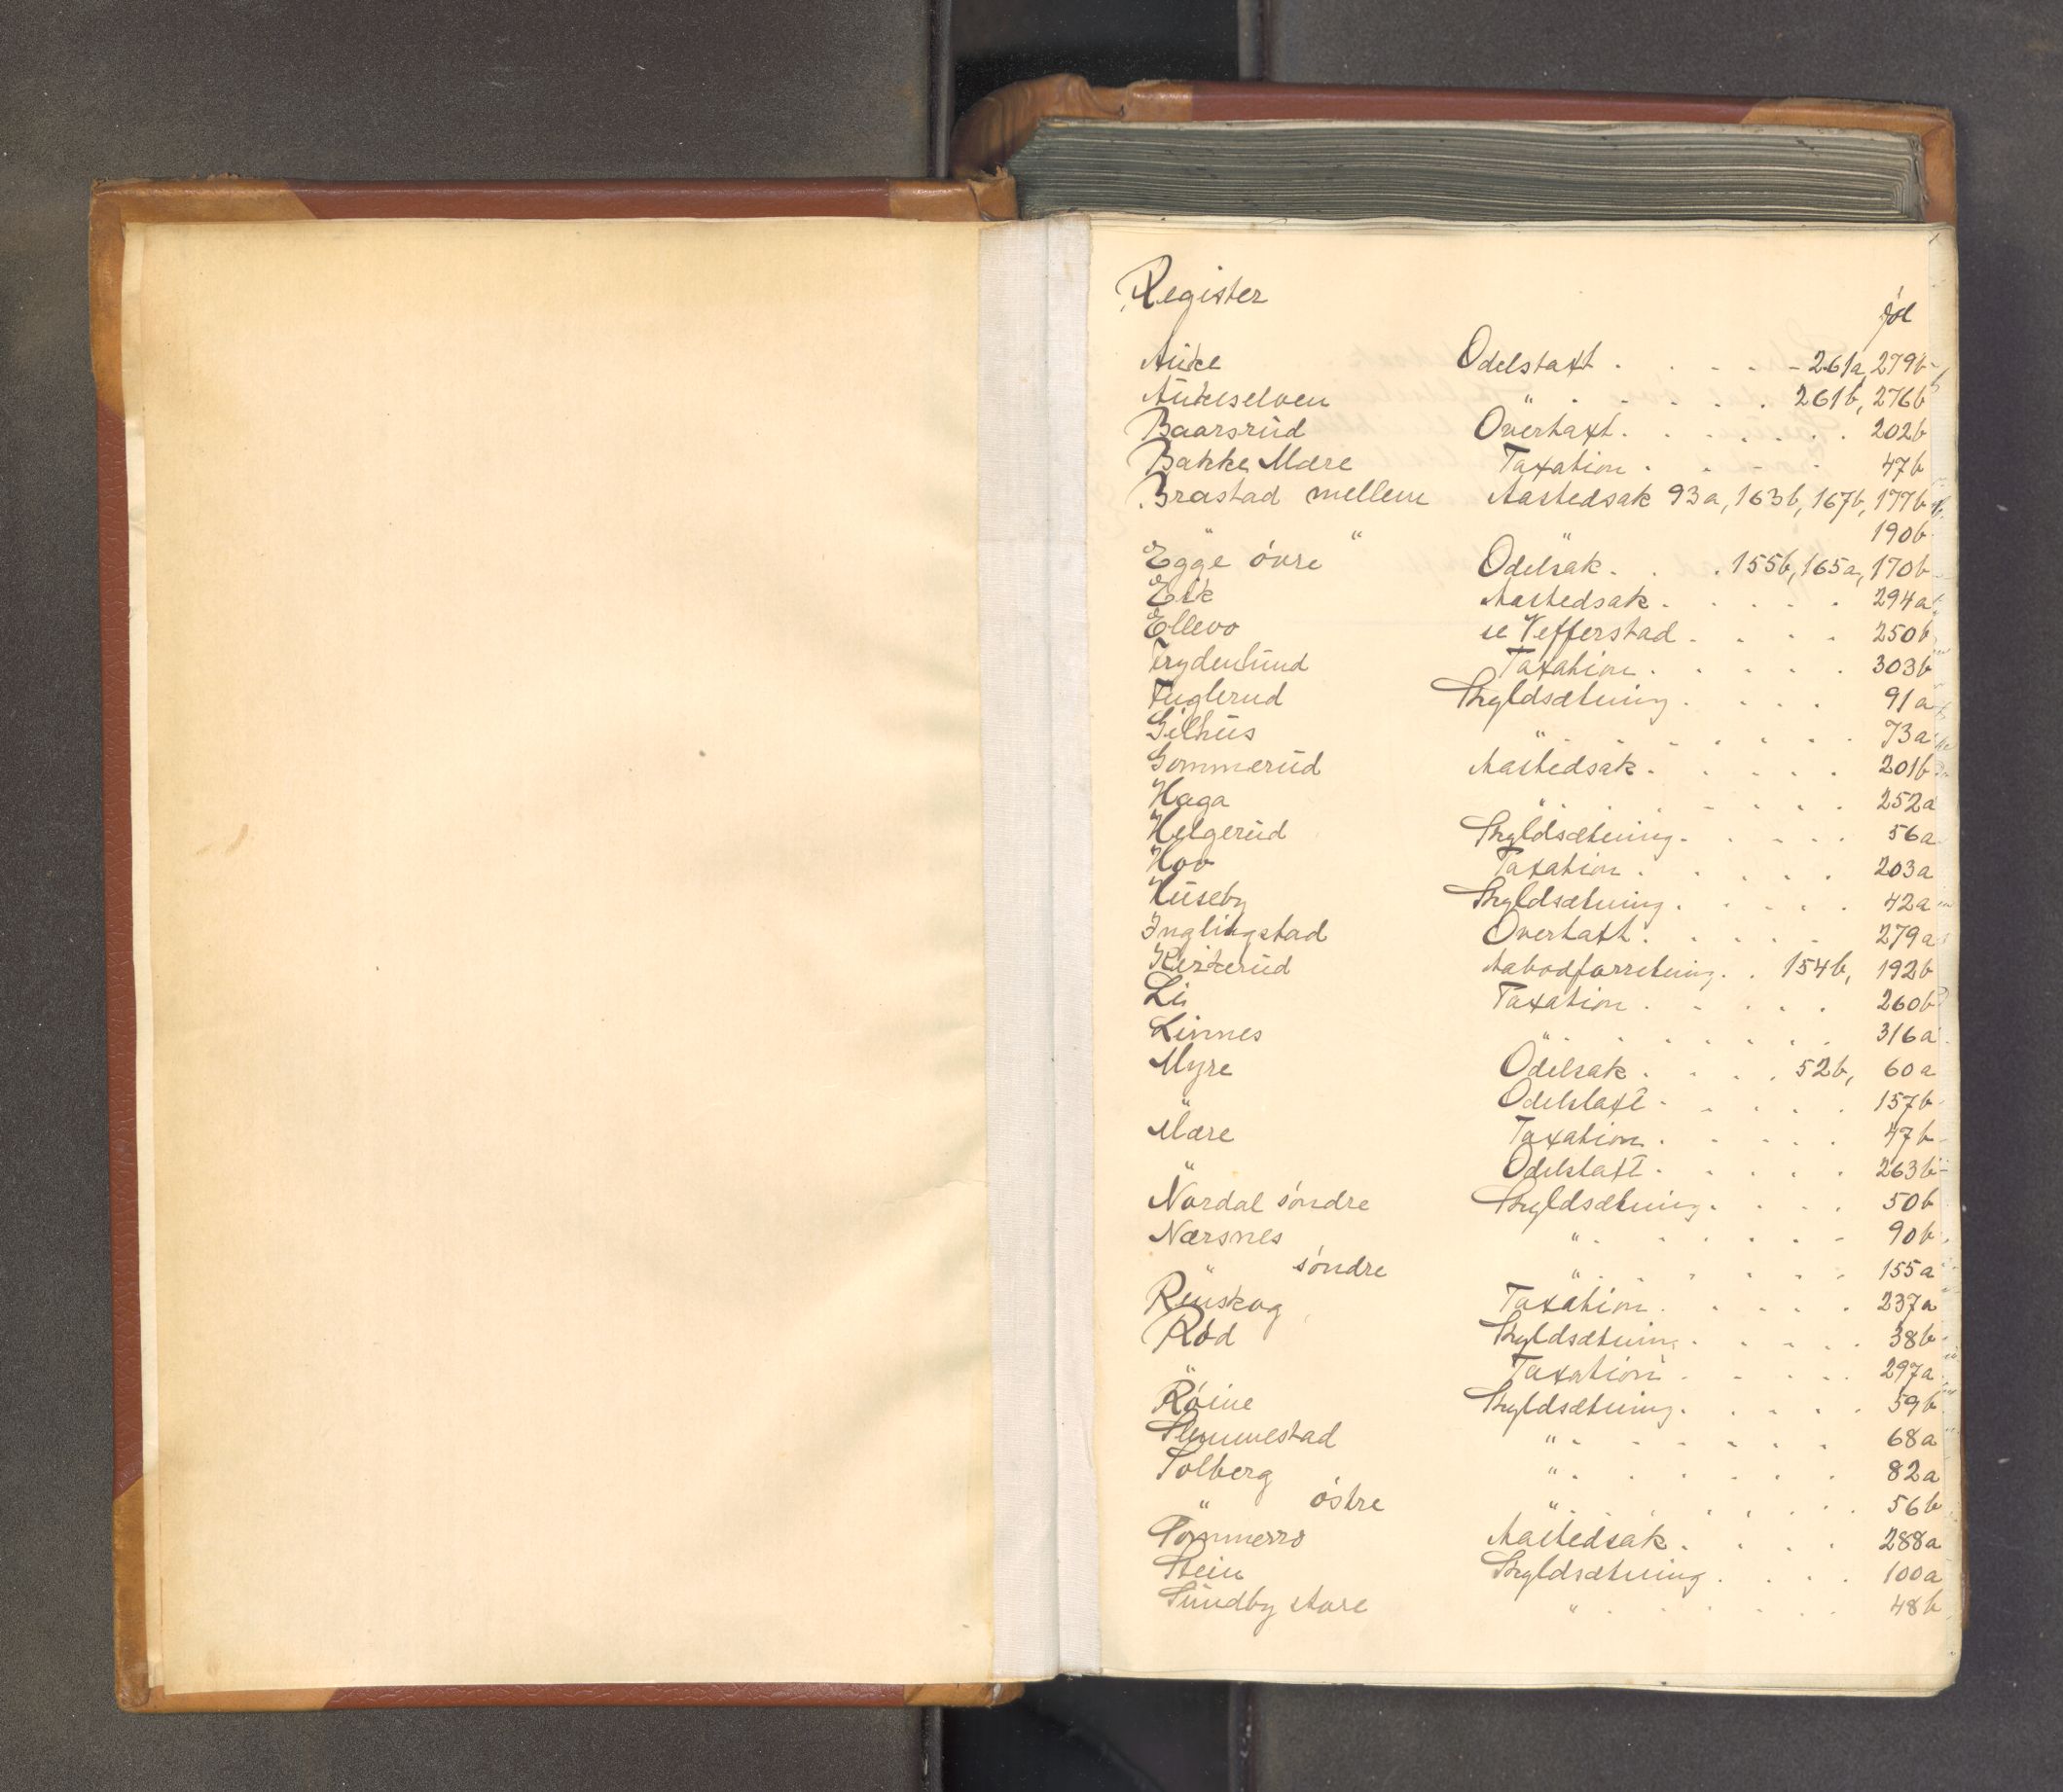 Register
fol
Auke Odelstaxt . . . . . 261a, 279b
Aukeselven " . . . . . 261b, 276b
Baarsrud Overtaxt . . . . . . . 202b
Bakke Mære Taxation . . . . 47b
Brastad mellem Aastedsak 93a, 163b, 167b, 177b
" " " 190b
Egge övre Odelsak . . . 155b, 165a, 170b
Eik Aastedsak . . . . . 294a
Ellevo se Vefferstad . . . . 250b
Frydenlund Taxation . . . . . 303b
Fuglerud Skyldsætning . . . . 91a
Gilhus " . . . . . . . 73a
Gommerud Aastedsak . . . . . 201b
Haga " . . . . . . . 252a
Helgerud Skyldsætning . . . . . 56a
Hov Taxation . . . . . 203a
Huseby Skyldsætning . . . . . 42a
Inglingstad Overtaxt . . . . . 279a
Kirkerud Aabodforretning . . 154b, 192b
Li Taxation . . . . . 260b
Linnes " . . . . . . . 316a
Myre Odelsak . . . . 52b, 60a
" Odelstaxt . . . . . 157b
Mære Taxation . . . . . 47b
" Odelstaxt . . . . . 263b
Nordal söndre Skyldsætning . . . . 50b
Nærsnes " . . . . . . 90b
" söndre " . . . . . . 155a
Renskog Taxation . . . . . 237a
Röd Skyldsætning . . . . . 38b
" Taxation . . . . . 297a
Röine Skyldsætning . . . . . 59b
Slemmestad " . . . . . . 68a
Solberg " . . . . . . 82a
" östre " . . . . . . 56b
Sommerro Aastedsak . . . . 288a
Stein Skyldsætning . . . . 100a
Sundby store " . . . . . . 48b